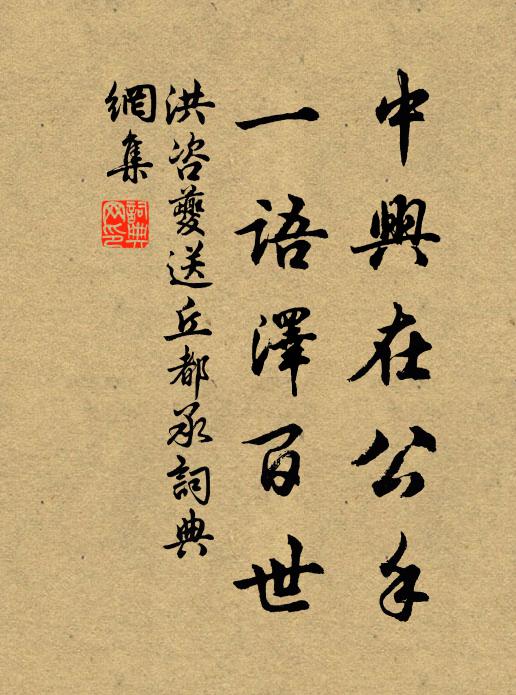 中興在公手
一語澤百世
洪咨夔送丘都承詞典
網集
詞典
网印